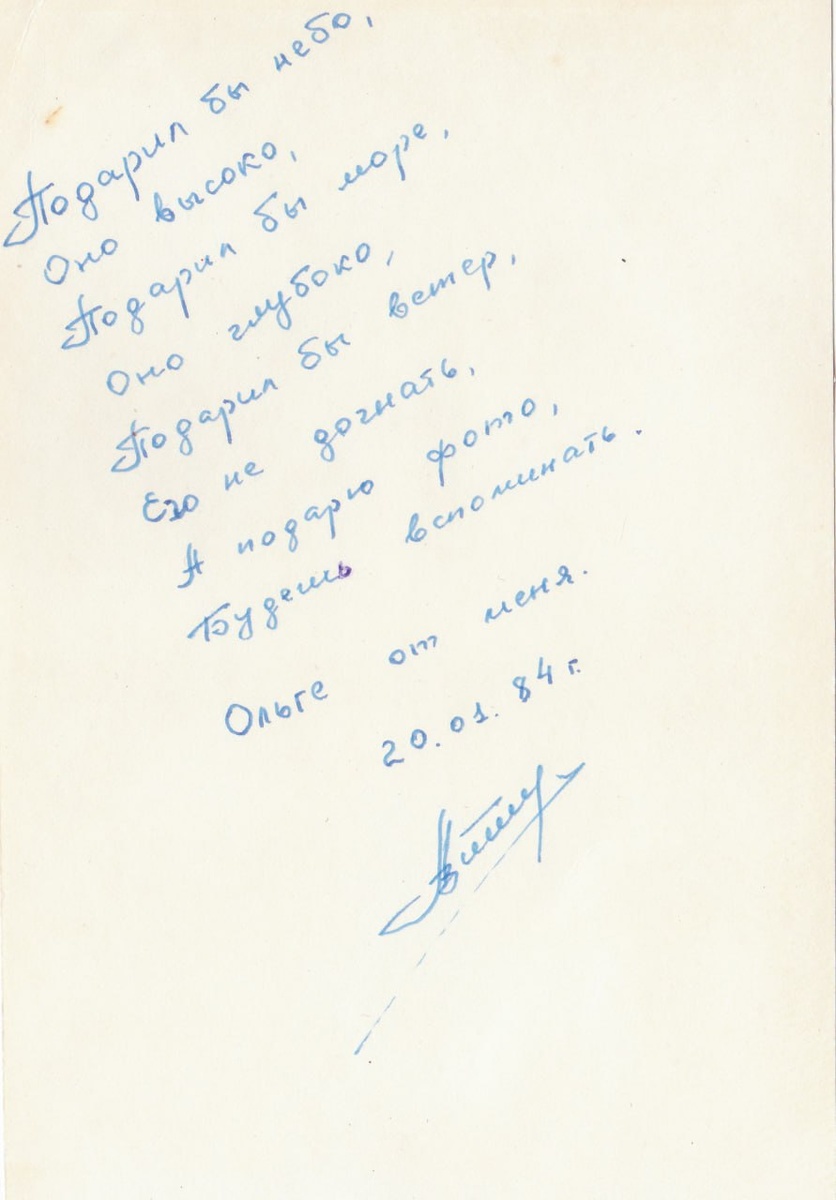 Подарил бы небо,
Оно высоко,
Подарил бы море,
Оно глубоко,
Подарил бы ветер,
Его не догнать,
А подарю фото,
Будешь вспоминать.
Ольге от меня.
20.01.84 г.